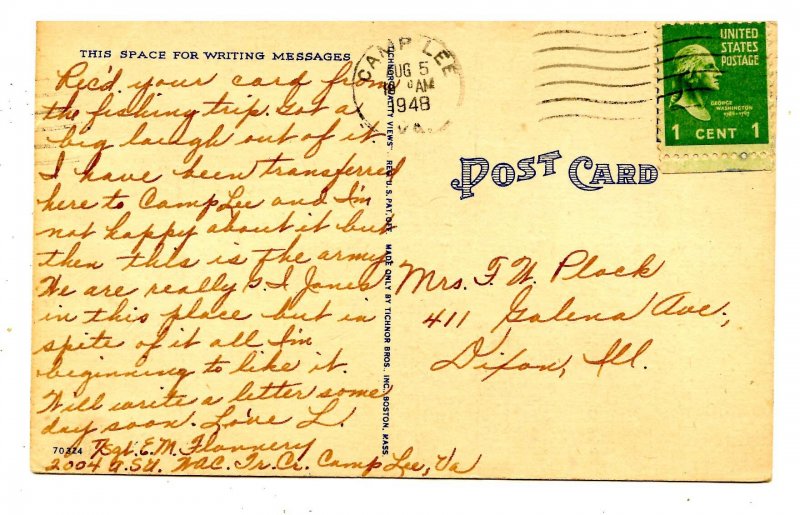 THIS SPACE FOR WRITING MESSAGES
Rec'd your card from
the fishing trip. Got a
big laugh out of it.
I have been transferred
here to Camp Lee and I'm
not happy about it but
then this is the army.
We are really G. I Janes
in this place but in
spite of it all I'm
beginning to like it.
Will write a letter some
day soon. Love L.
70324
T/Sgt. E. M. Flannery
2004 A.S.U. WAC. Tr. Cr. Camp Lee, Va
"TICHNOR QUALITY VIEWS" REG. U.S. PAT. OFF. MADE ONLY BY TICHNOR BROS. INC., BOSTON, MASS.
CAMP LEE
AUG 5
AM
1948
VA.
UNITED
STATES
POSTAGE
GEORGE
WASHINGTON
1789-1797
1 CENT 1
POST CARD
Mrs. F. W. Plock
411 Galena Ave.,
Dixon, Ill.